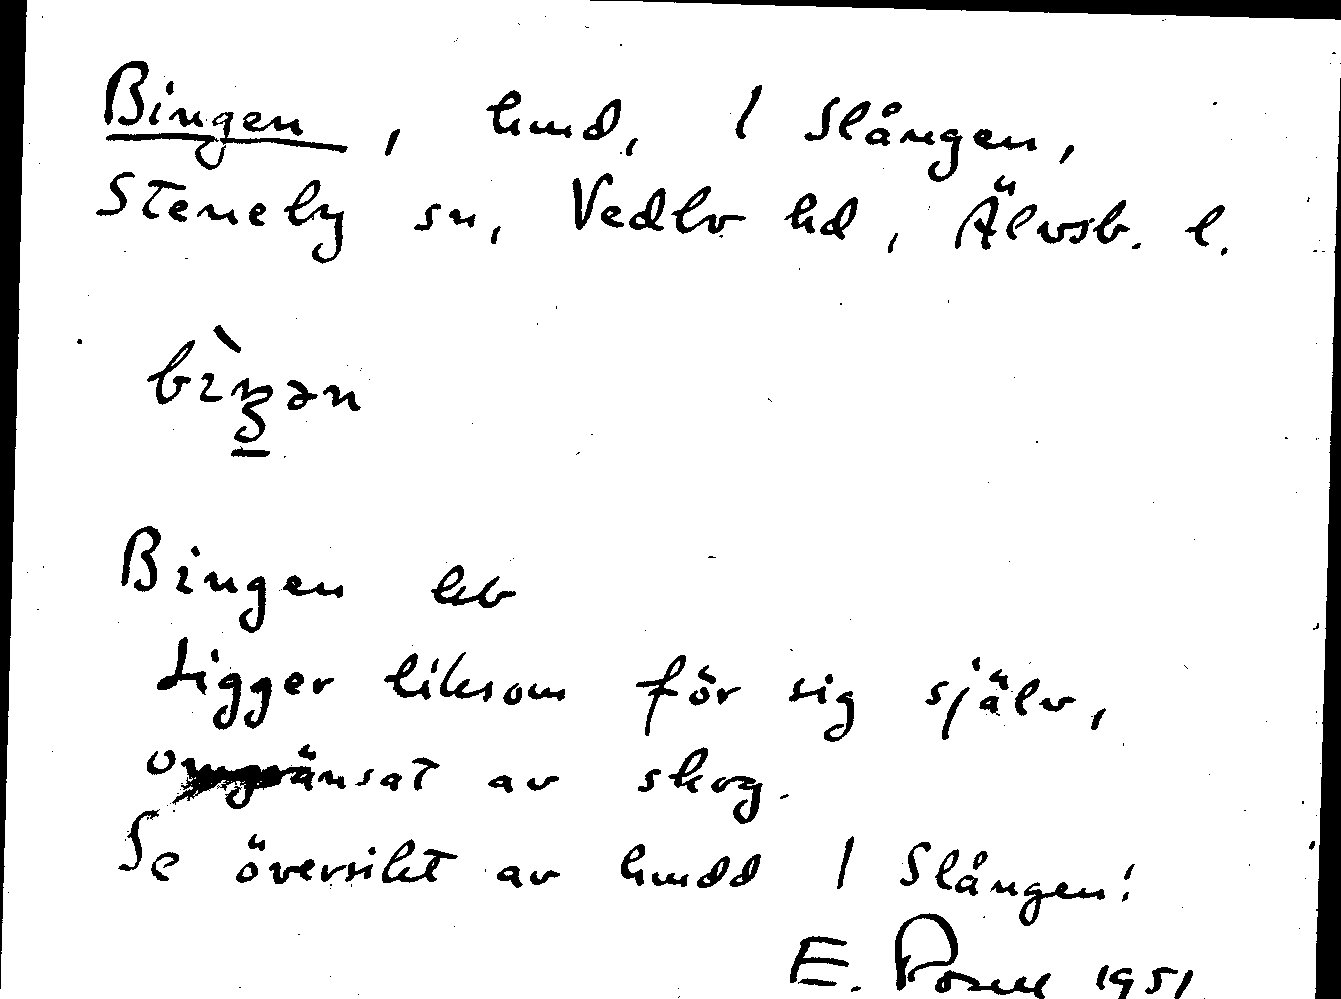 Bingen, hmd, 1 Slången,
Steneby sn, Vedbo hd, Älvsb. l.
Bingen
Ligger liksom för sig själv,
omgränsat av skog.
Se översikt av hmdd 1 Slången!
E. 1951